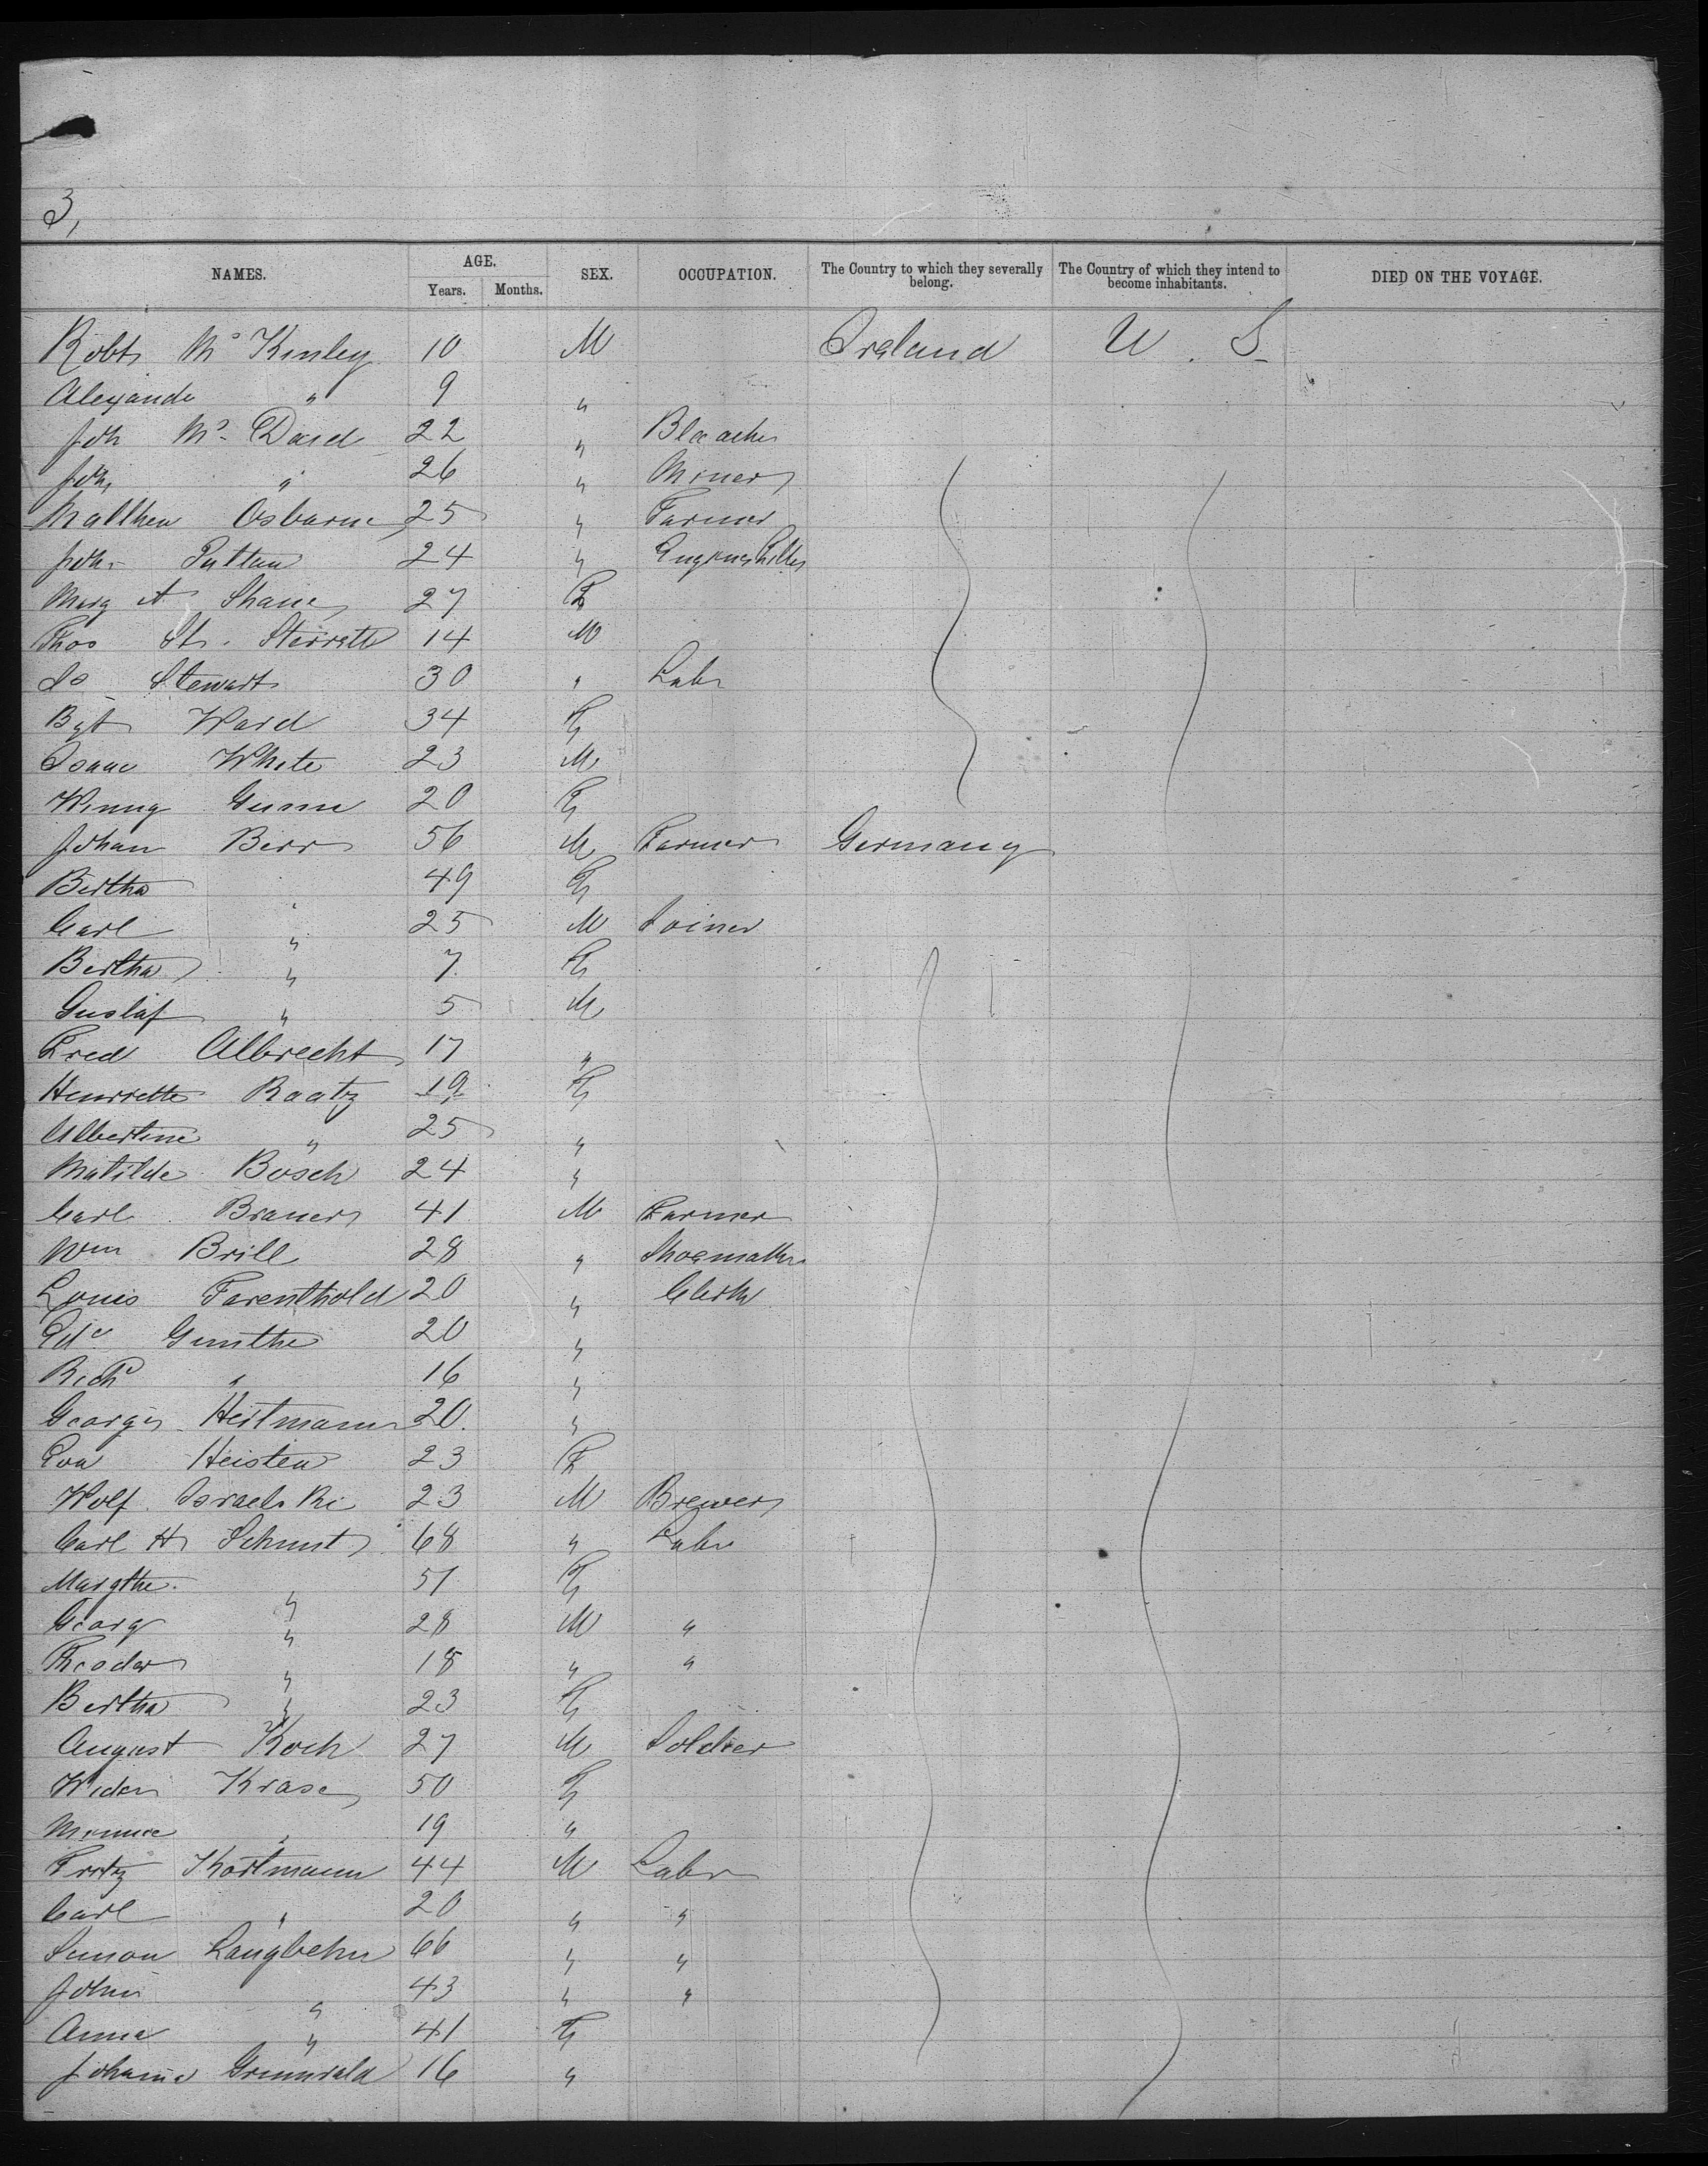 3,
NAMES. AGE. Years. Months. SEX. OCCUPATION. The Country to which they severally belong. The Country of which they intend to become inhabitants. DIED ON THE VOYAGE.
Robt Mc Kinley 10 M Ireland U. S.
Alexande " 9 "
Joh Mc Daid 22 " Bleacher
Joh, " 26 " Miner
Matthew Osborne 25 " Farmer
Joh. Pattan 24 " Enginefitter
Marg A Shane 27 F
Thos St. Sterrett 14 M
do Stewart 30 " Labr
Bgt Ward 34 F
Isaac White 23 M
Winny Gunn 20 F
Johan Birr 56 M Farmer Germany
Bertha " 49 F
Carl " 25 M Joiner
Bertha " 7 F
Gustaf " 5 M
Fred Albrecht 17 "
Henriette Raatz 19 F
Albertine " 25 "
Matilde Bosch 24 "
Carl Brauer 41 M Farmer
Wm Brill 28 " Shoemaker
Louis Farenthold 20 " Clerk
Edd Gunthe 20 "
Richd " 16 "
George Heitmann 20. "
Eva Heisten 23 F
Wolf Israelski 23 M Brewer
Carl H Schmit 68 " Labr
Margthe. " 51 F
Georg " 28 M "
Theodor " 18 " "
Bertha " 23 F
August Koch 27 M Soldier
Krase 50 F
Minnie " 19 "
Fritz Kortmann 44 M Labr
Carl " 20 " "
Simon Langbehn 66 " "
John " 43 " "
Anna " 41 F
Johanna Grunwald 16 "